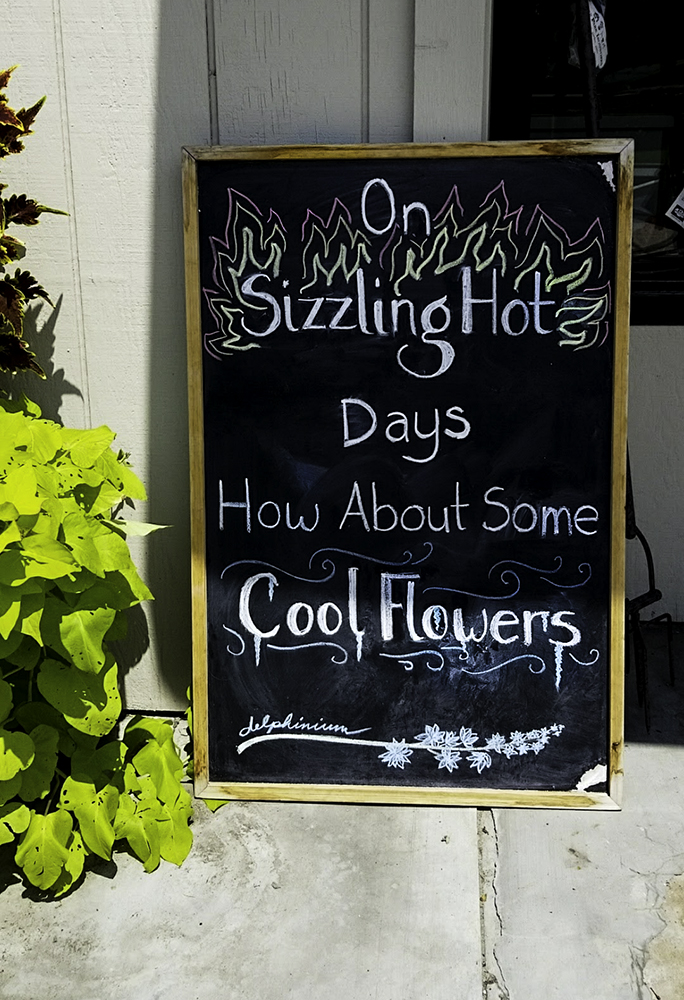 On
Sizzling Hot
Days
How About Some
Cool Flowers
delphinium